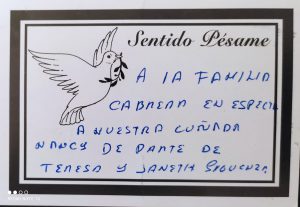 Sentido Pésame
A LA FAMILIA
CABRERA EN ESPECIAL
A NUESTRA CUÑADA
NANCY DE PARTE DE
TERESA Y JANETH